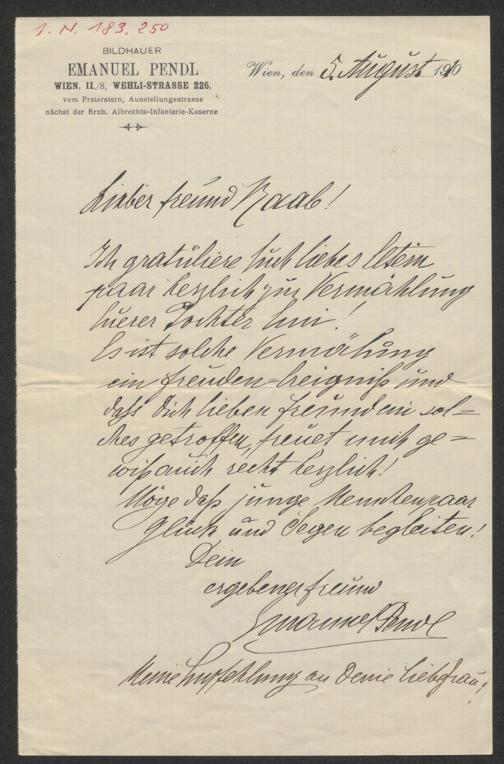 I. N. 183.250
BILDHAUER
EMANUEL PENDL
WIEN, II./8, WEHLI-STRASSE 226,
vom Praterstern, Ausstellungsstrasse
nächst der Erzh. Albrechts-Infanterie-Kaserne
Wien, den 5. August 1910
Lieber freund Raab!
Ich gratuliere Euch liebes Eltern
paar herzlich zur Vermählung
Euerer Tochter Emi.
Es ist solche Vermälung
ein freuden=Ereigniß und
daß Dich lieben freund ein sol=
ches getroffen, freuet mich ge=
wiß auch recht herzlich!
Möge daß junge Menschenpaar
Glück und Segen begleiten!
Dein
ergebener freund
Emanuel Pendl
Meine Empfehlung an Deine liebe Frau!